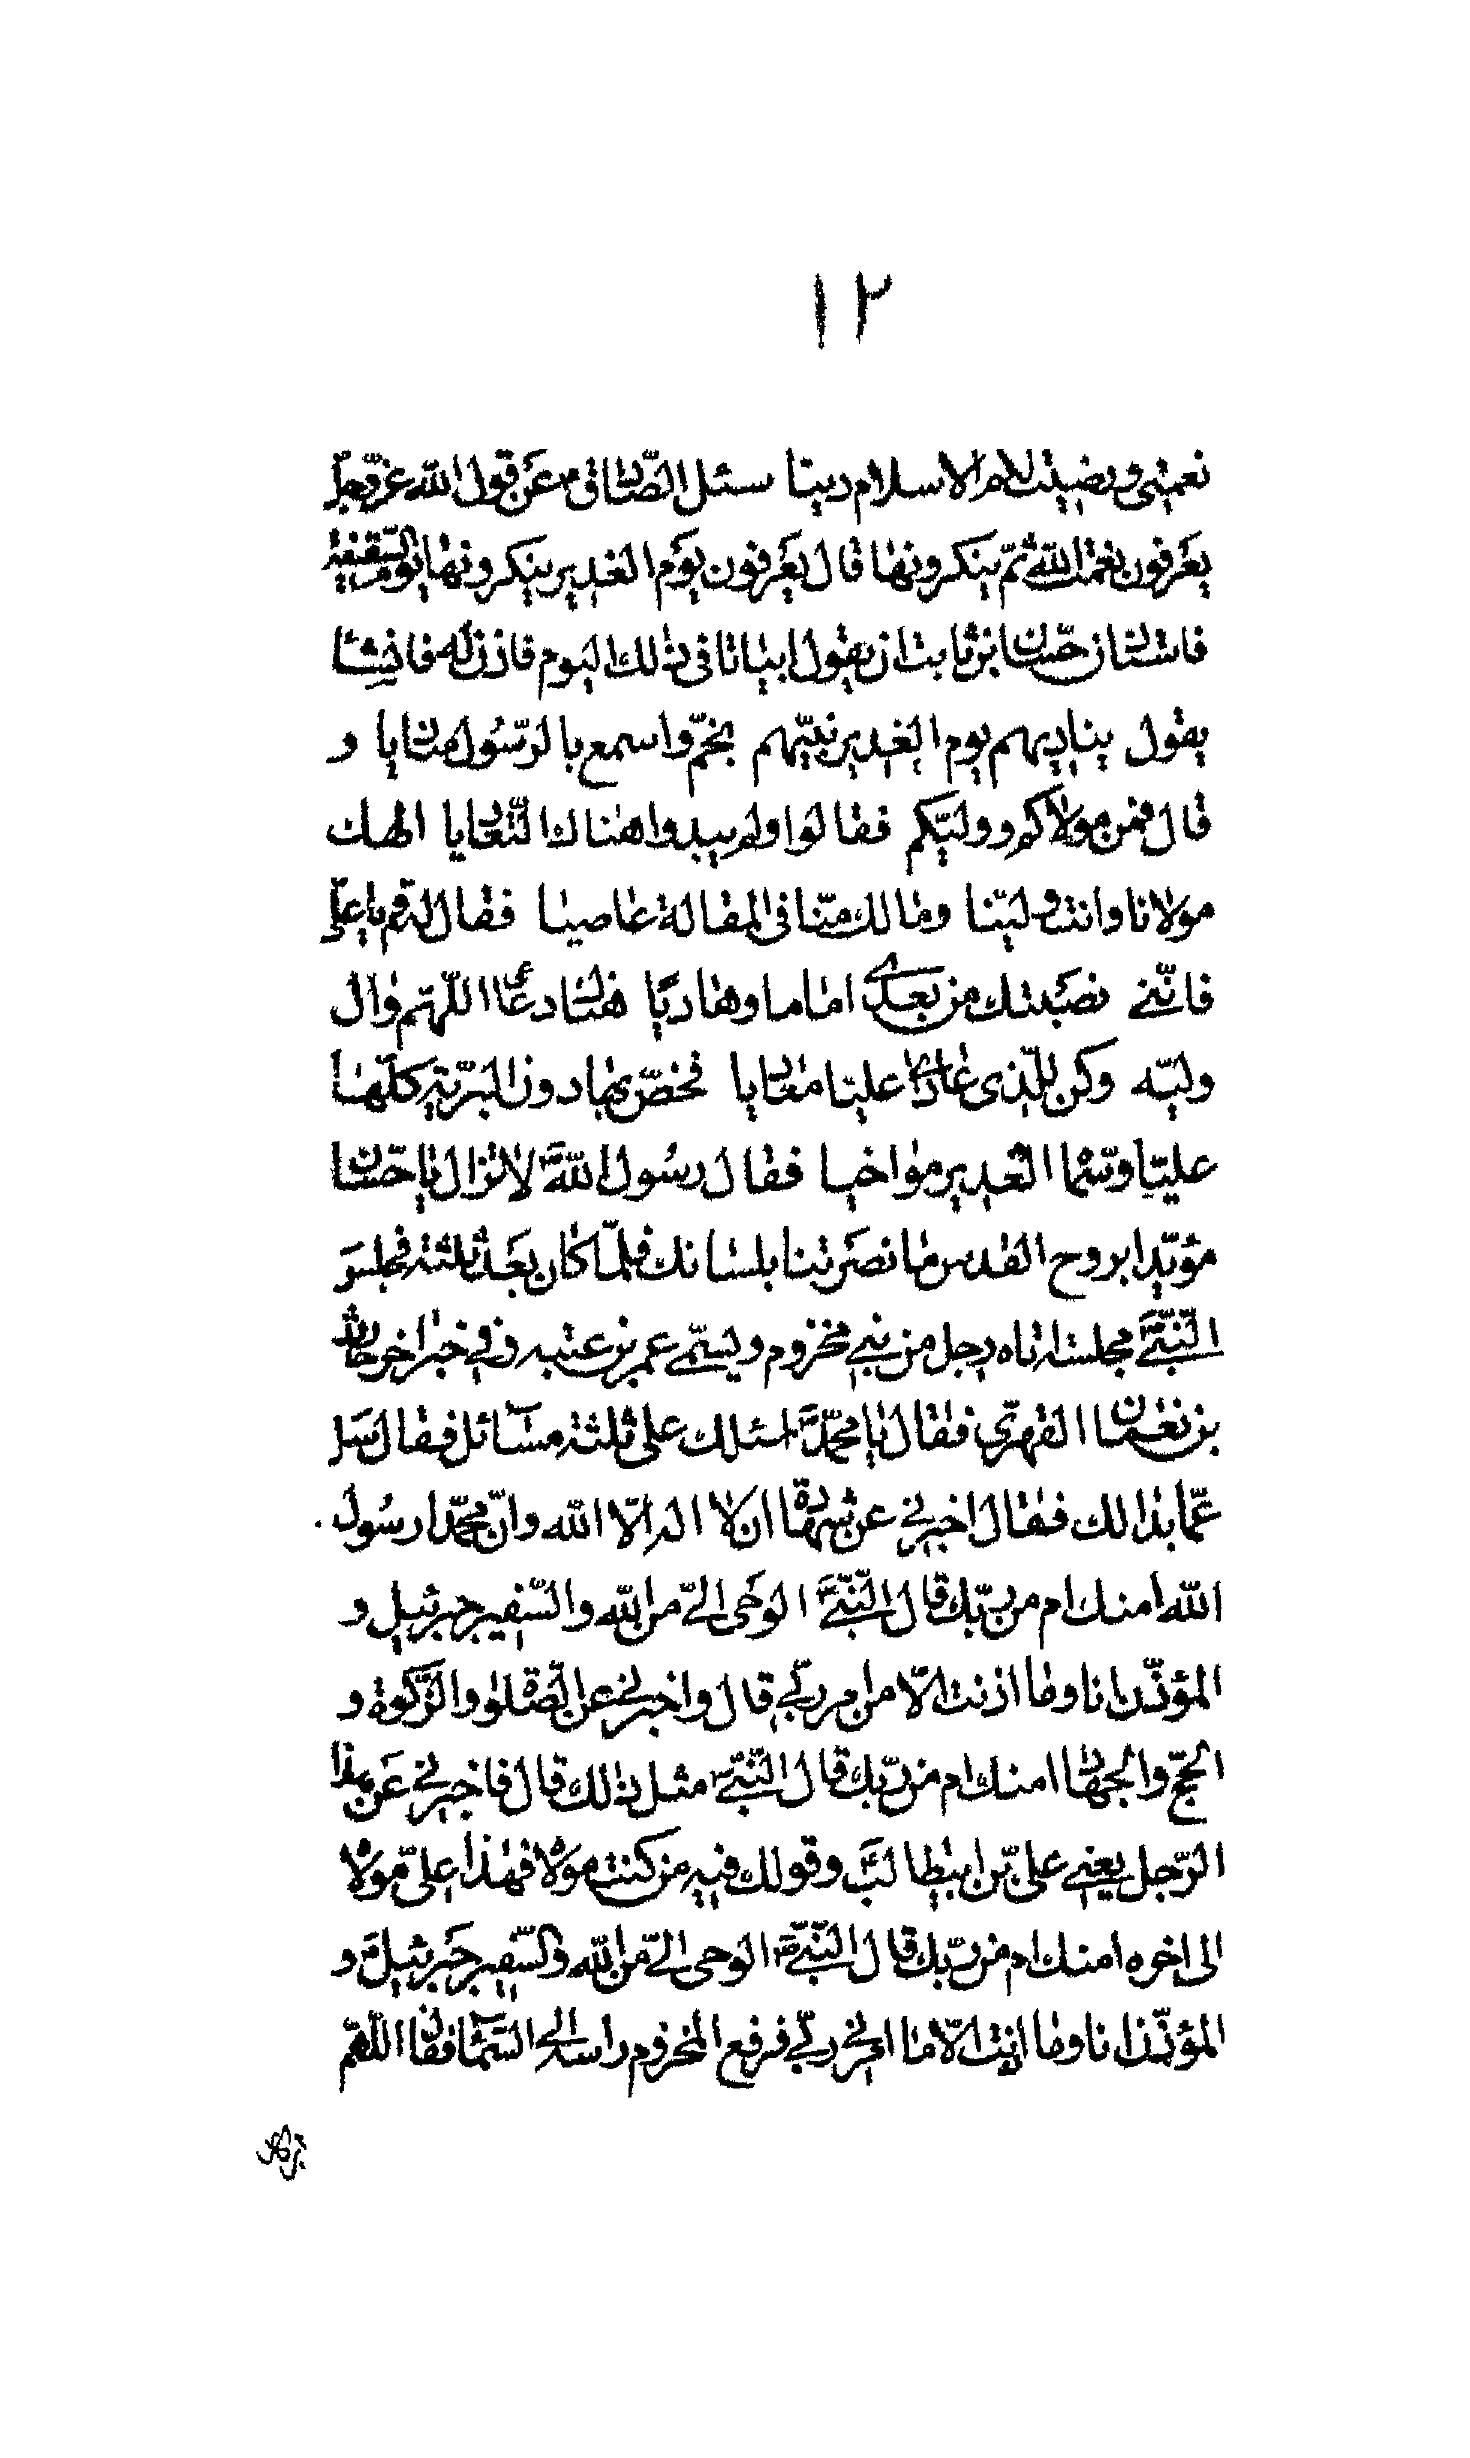 ١٢
نعمتی و رضیت لکم الاسلام دینا سئل الصّادق عَن قول الله عزّوجلّ
یعَرفون نعمة اللهُ ثمّ ینکرونها قال یعَرفون یوَم الغدیر ینکرونها یوم السّقیفة
فاستاذن حسّان بن ثابت ان یقول ابیاتا فی ذلک الیوم فاذن له فانشأ
یقول ینادیهم یوم الغدیر نبیّهم بخمّ واسمع بالرّسُول منادیا و
قال فمن مولاکم وولیّکم فقالوا ولم یبدوا هناک التّعادیا الهک
مولانا وانت ولیّنا ومالک منّا فی المقالة عاصیا فقال له قم یا علیّ
فانّنی نصَبتک من بعدی اماما وهادیًا هناک دعا اللّهم وال
ولیّه وکن للّذی عادی علیّا معادیا فخصّ بها دون البَریّة کلّها
علیّا وسمّا الغدیر مواخیا فقال رسُول اللهَّ لا تزال یا حسّان
مؤیّدا بروح القدس ما نصَرتنا بلسانک فلمّا کان بعَد ثلثة فجلسَ
النّبیَّ مجلسا اتاه رجل من بنی مخزوم ویسمّی عمر بن عتبه وفی خبر اخر حارث
بن نعمان الفهریّ فقال یا محمّدَّ اسئلک علی ثلثة مسَآئل فقال سَل
عمّا بذالک فقال اخبرنی عن شهادة ان لا اله الّا الله وانّ محمّدا رسُول
الله امنک ام من ربّک قال النّبیَّ الوحَی الیّ من الله والسّفیر جبرئیل و
المؤذّن انا وما اذنت الّا من امر ربّی قال واخبرنی عن الصّلوة والزّکوة و
الحجّ والجهاد امنک ام من ربّک قال النّبیّ مثل ذالک قال فاخبرنی عَن هذا
الرّجل یعنی علیّ بن ابیطالبَّ وقولک فیه من کنت مولاه فهذا علیّ مولاه
الی اخره امنک ام من ربّک قال النّبیَّ الوحی الیّ من الله والسّفیر جَبرئیلَّ و
المؤذّن انا وما اذنت الّا ما امرنی ربّی فرفع المخزوم راسه الی السّمآء فقال اللّهمّ